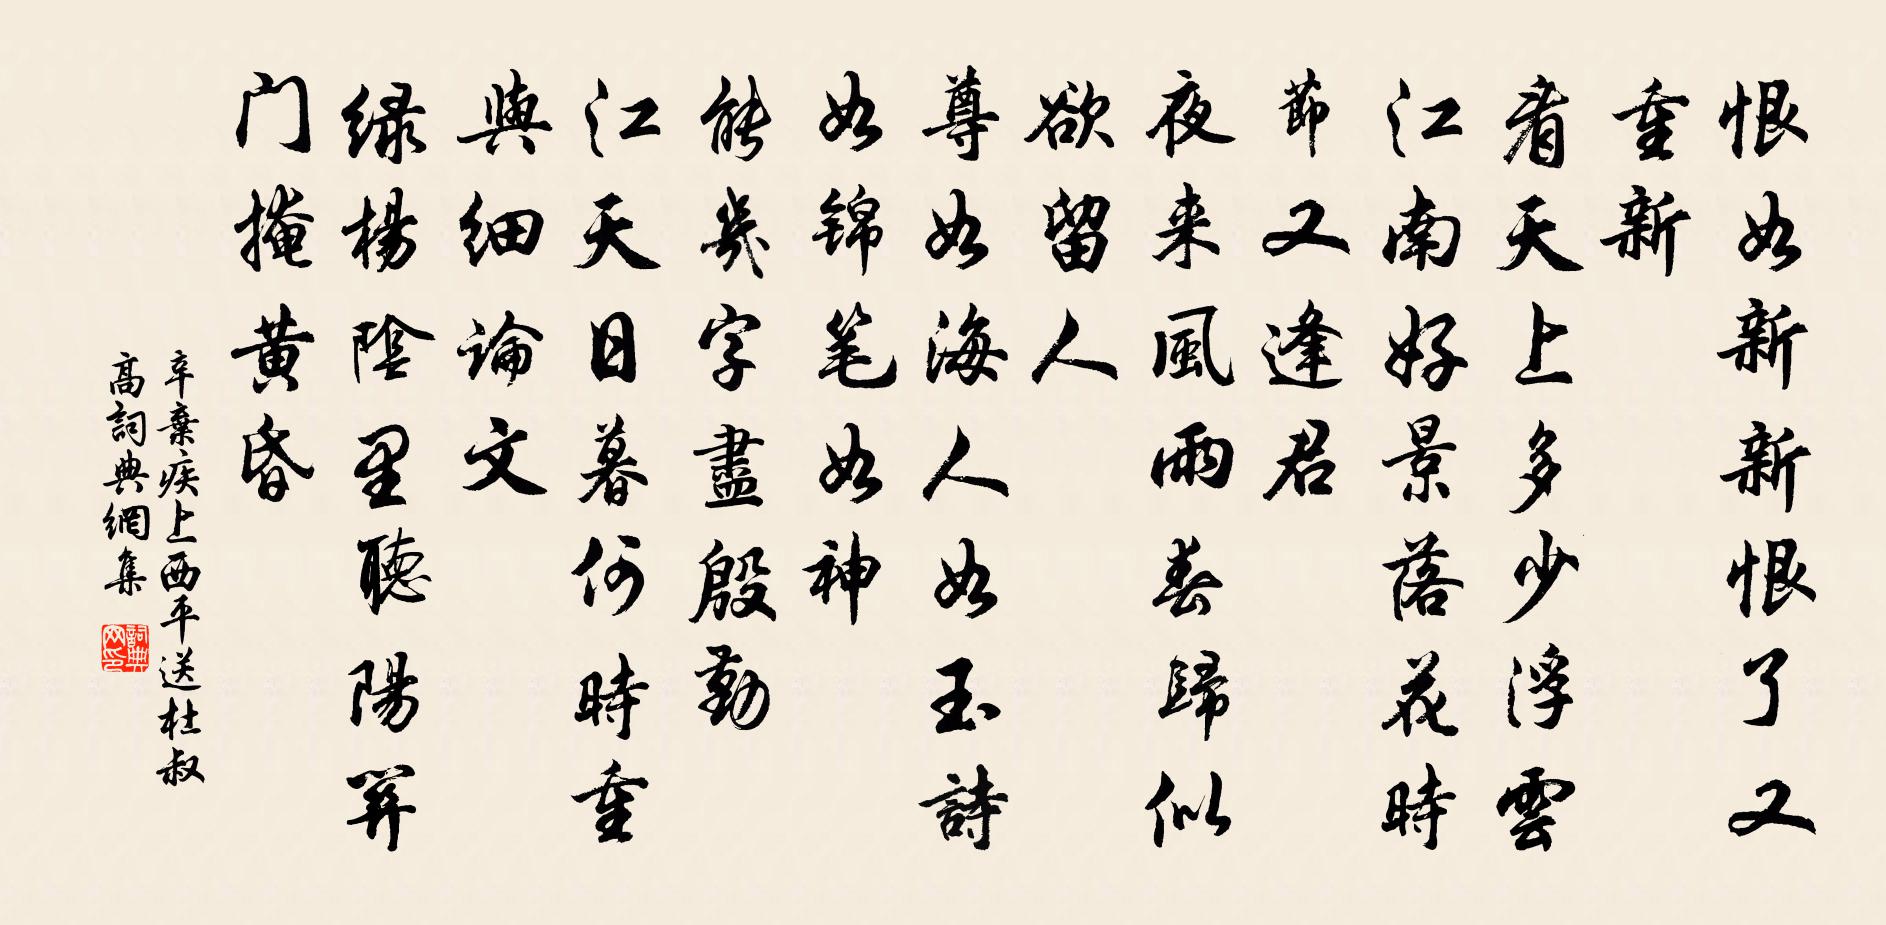 恨如新新恨了又
重新
看天上多少浮雲
江南好景落花時
節又逢君
夜来風雨春歸似
欲留人
尊如海人如玉詩
如锦笔如神
能幾字盡殷勤
江天日暮何時重
與细論文
绿楊陰里聽陽関
门掩黄昏
辛棄疾上西平送杜叔
高詞典網集
詞典网印